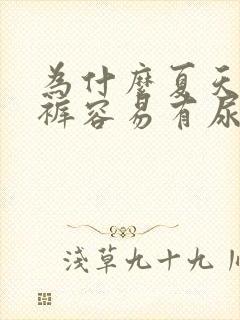 為什麼夏天
裤容易有尿
淺草九十九